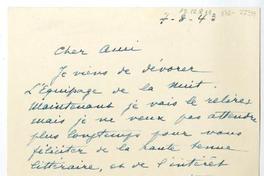 7-8-43
Cher Ami
Je viens de dévorer
L'Equipage de la nuit.
Maintenant je vais le relire,
mais je ne veux pas attendre
plus longtemps pour vous
féliciter de la haute tenue
littéraire, et de l'intérêt